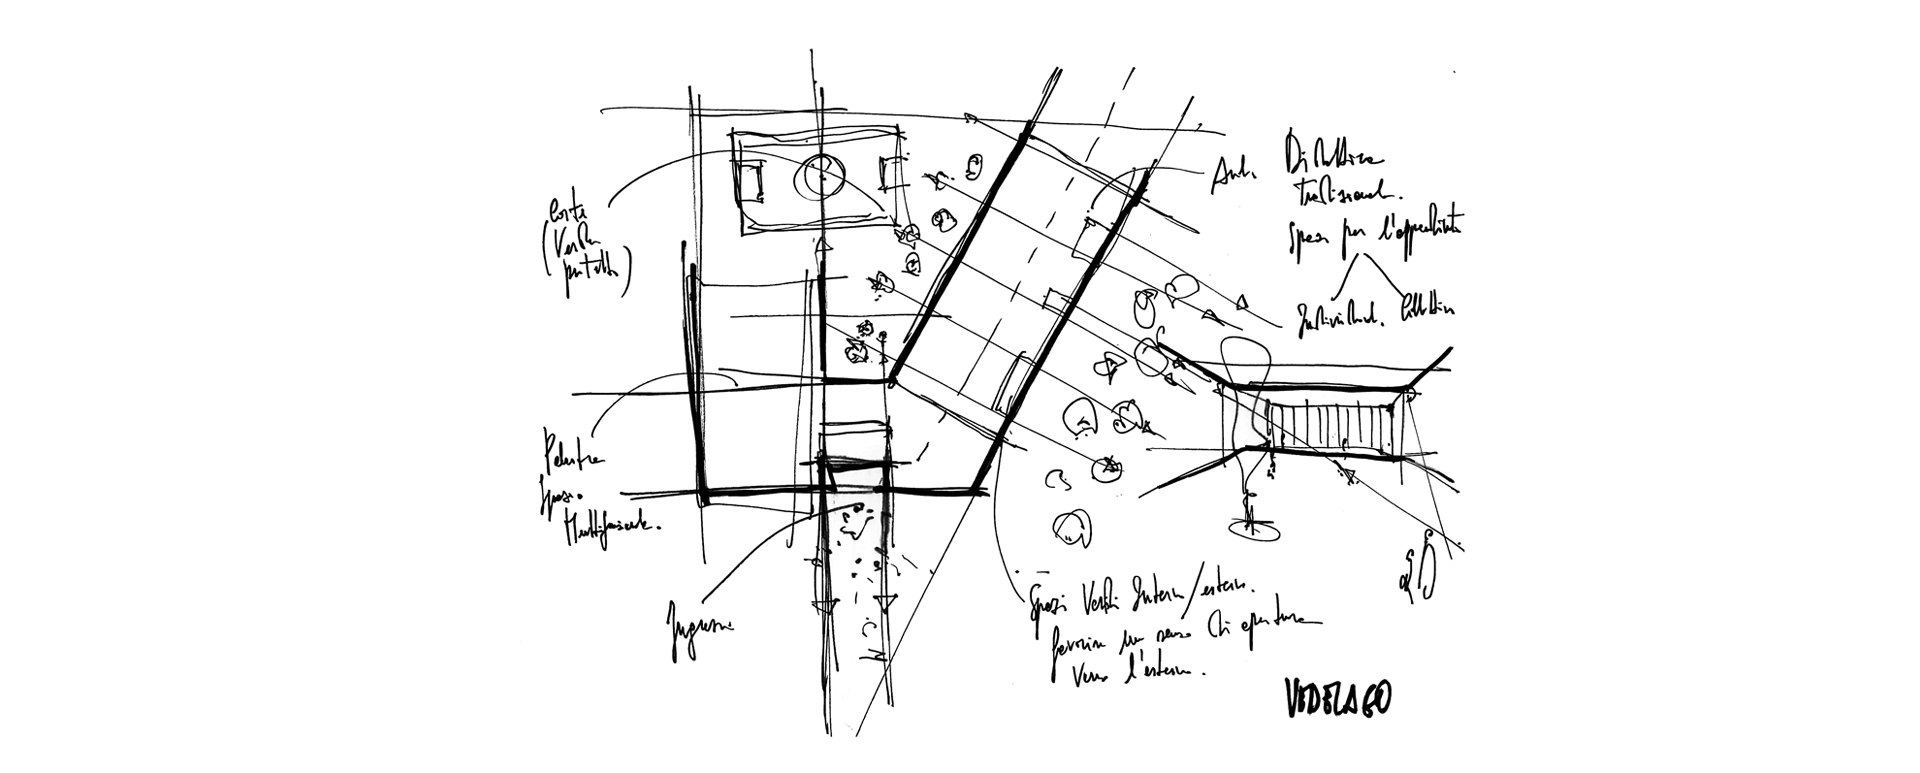 Corte
(Verde
protetto)
Aule.
Didattica
Tradizional.
Spazi per l'apprendimento
Individual. Collettivo
Palestra
Spazio
Multifunzionale.
Ingresso
Spazi Verdi Interni/esterni.
favorire un senso di apertura
verso l'esterno.
VEDELAGO